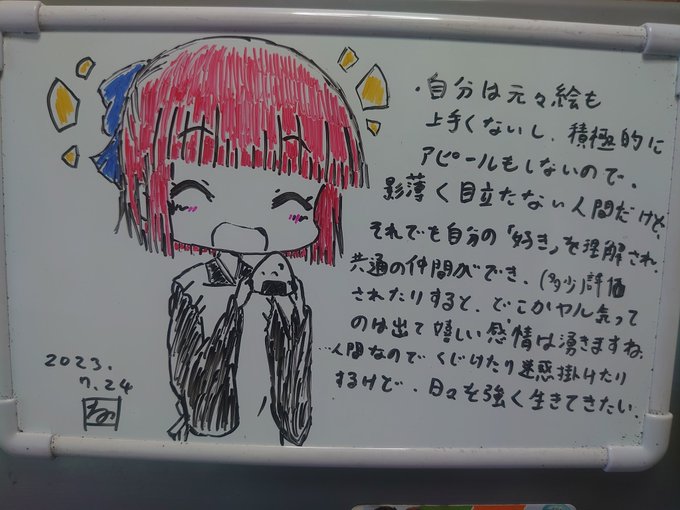 ・自分は元々絵も
上手くないし、積極的に
アピールもしないので、
影薄く目立たない人間だけど、
それでも自分の「好き」を理解され、
共通の仲間ができ、(多少)評価
されたりすると、どこかヤル気って
のは出て嬉しい感情は湧きますね。
人間なのでくじけたり迷惑掛けたり
するけど、日々を強く生きてきたい。
2023.
7.24